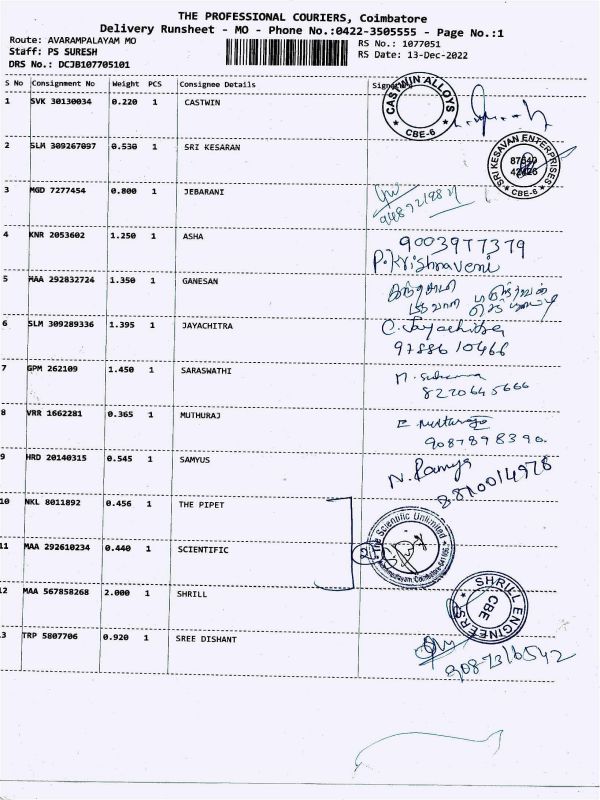 THE PROFESSIONAL COURIERS, Coimbatore
Delivery Runsheet - MO - Phone No.:0422-3505555 - Page No.:1
Route: AVARAMPALAYAM MO
RS No.: 1077051
Staff: PS SURESH
RS Date: 13-Dec-2022
DRS No.: DCJB107705101
S No Consignment No Weight PCS Consignee Details
1 SVK 30130034 0.220 1 CASTWIN
CASTWIN ALLOYS
* CBE-6 *
2 SLM 309267097 0.530 1 SRI KESARAN
SRI KESAVAN ENTERPRISES
* CBE-6 *
3 MGD 7277454 0.800 1 JEBARANI
4 KNR 2053602 1.250 1 ASHA
9003977379
P.Krishnaveni
5 MAA 292832724 1.350 1 GANESAN
6 SLM 309289336 1.395 1 JAYACHITRA
C.Jayachitra
9788610466
7 GPM 262109 1.450 1 SARASWATHI
8220645666
8 VRR 1662281 0.365 1 MUTHURAJ
9087898390
9 HRD 20140315 0.545 1 SAMYUS
N.Ramya
8870014978
10 NKL 8011892 0.456 1 THE PIPET
The Scientific Unlimited
11 MAA 292610234 0.440 1 SCIENTIFIC
12 MAA 567858268 2.000 1 SHRILL
SHRILL ENGINEERS
CBE
13 TRP 5807706 0.920 1 SREE DISHANT
9087316542